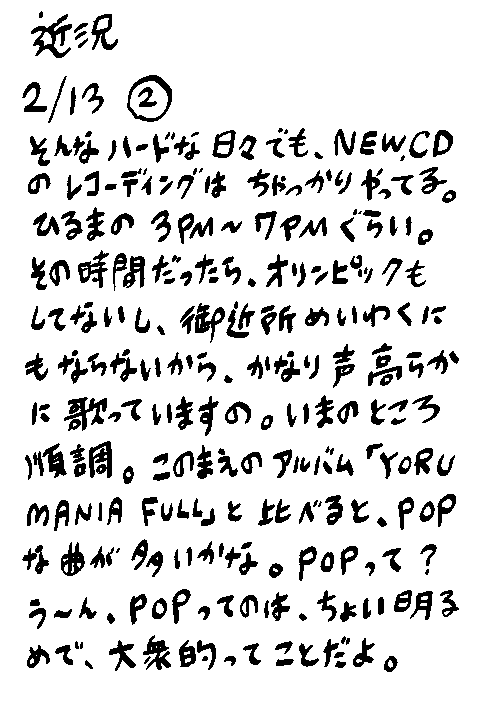 近況
2/13 ②
そんなハードな日々でも、NEW,CD
のレコーディングはちゃっかりやってる。
ひるまの3PM〜7PMぐらい。
その時間だったら、オリンピックも
してないし、御近所めいわくに
もならないから、かなり声高らか
に歌っていますの。いまのところ
順調。このまえのアルバム「YORU
MANIA FULL」と比べると、POP
な曲が多いかな。POPって?
う〜ん、POPってのは、ちょい明る
めで、大衆的ってことだよ。